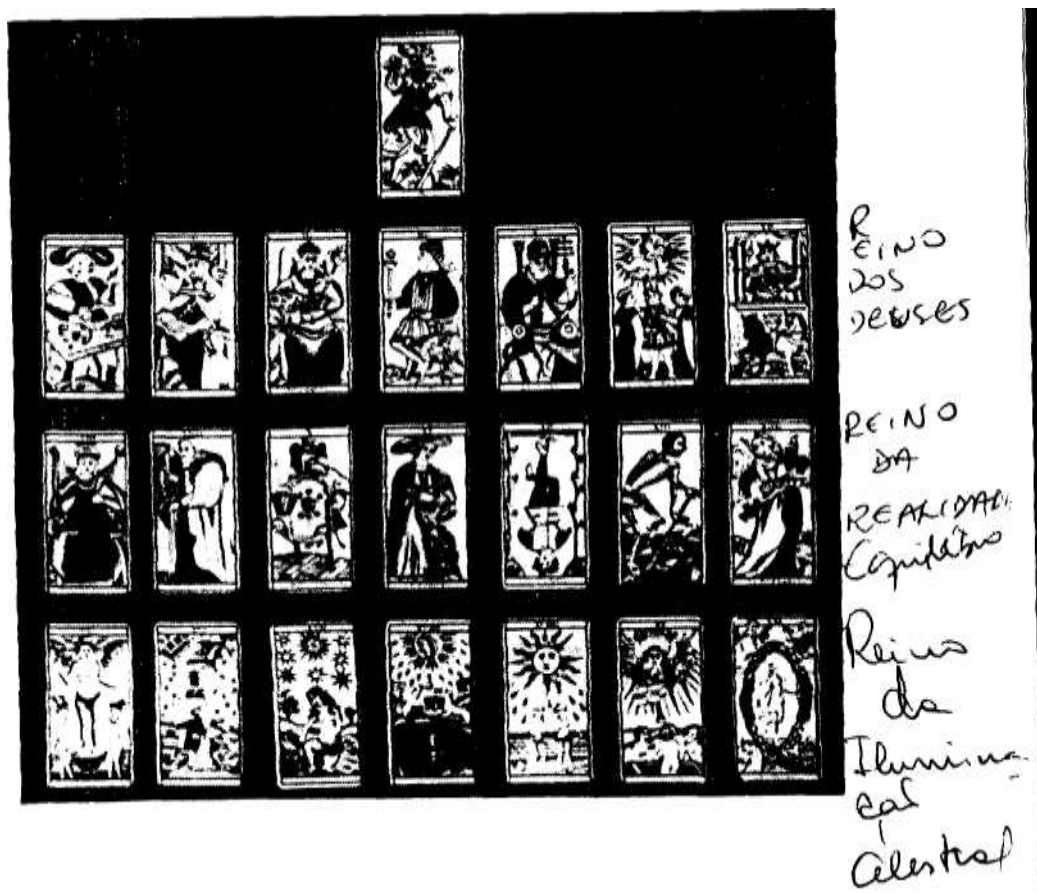 REINO
DOS
DEUSES
REINO
DA
REALIDADE
Equilíbrio
Reino
da
Ilumina-
ção
Celestial